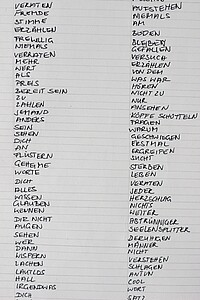 VERATEN
FREMDE
STIMME
ERZÄHLEN
FREIWILLIG
NIEMALS
VERRATEN
MEHR
WERT
ALS
PREIS
BEREIT SEIN
ZU
ZAHLEN
JEMAND
ANDERS
SEIN
SEHEN
DICH
AN
FLÜSTERN
GEHEIME
WORTE
DICH
ALLES
WISSEN
GLAUBEN
KENNEN
DIE NICHT
AUGEN
SEHEN
WER
DANN
WISPERN
LACHEN
LAUTLOS
HALL
IRGENDWAS
DICH
AUFSTEHEN
NIEMALS
AM
BODEN
BLEIBEN
GEFALLEN
VERSUCH
ERZÄHLEN
VON DEM
WAS WAR
HÖREN
NICHT ZU
NUR
ANSEHEN
KÖPFE SCHÜTTELN
FRAGEN
WARUM
GESCHWIEGEN
ERSTMAL
ERGREIFEN
SUCHT
STERBEN
LEBEN
VERATEN
JEDER
HERZSCHLAG
NICHTS
WEITER
ABTRÜNNIGER
SEELENSPLITTER
BERUHIGEN
MÄNNER
NICHT
VERSTEHEN
SCHLAGEN
ANTUN
COOL
WORT
SATZ